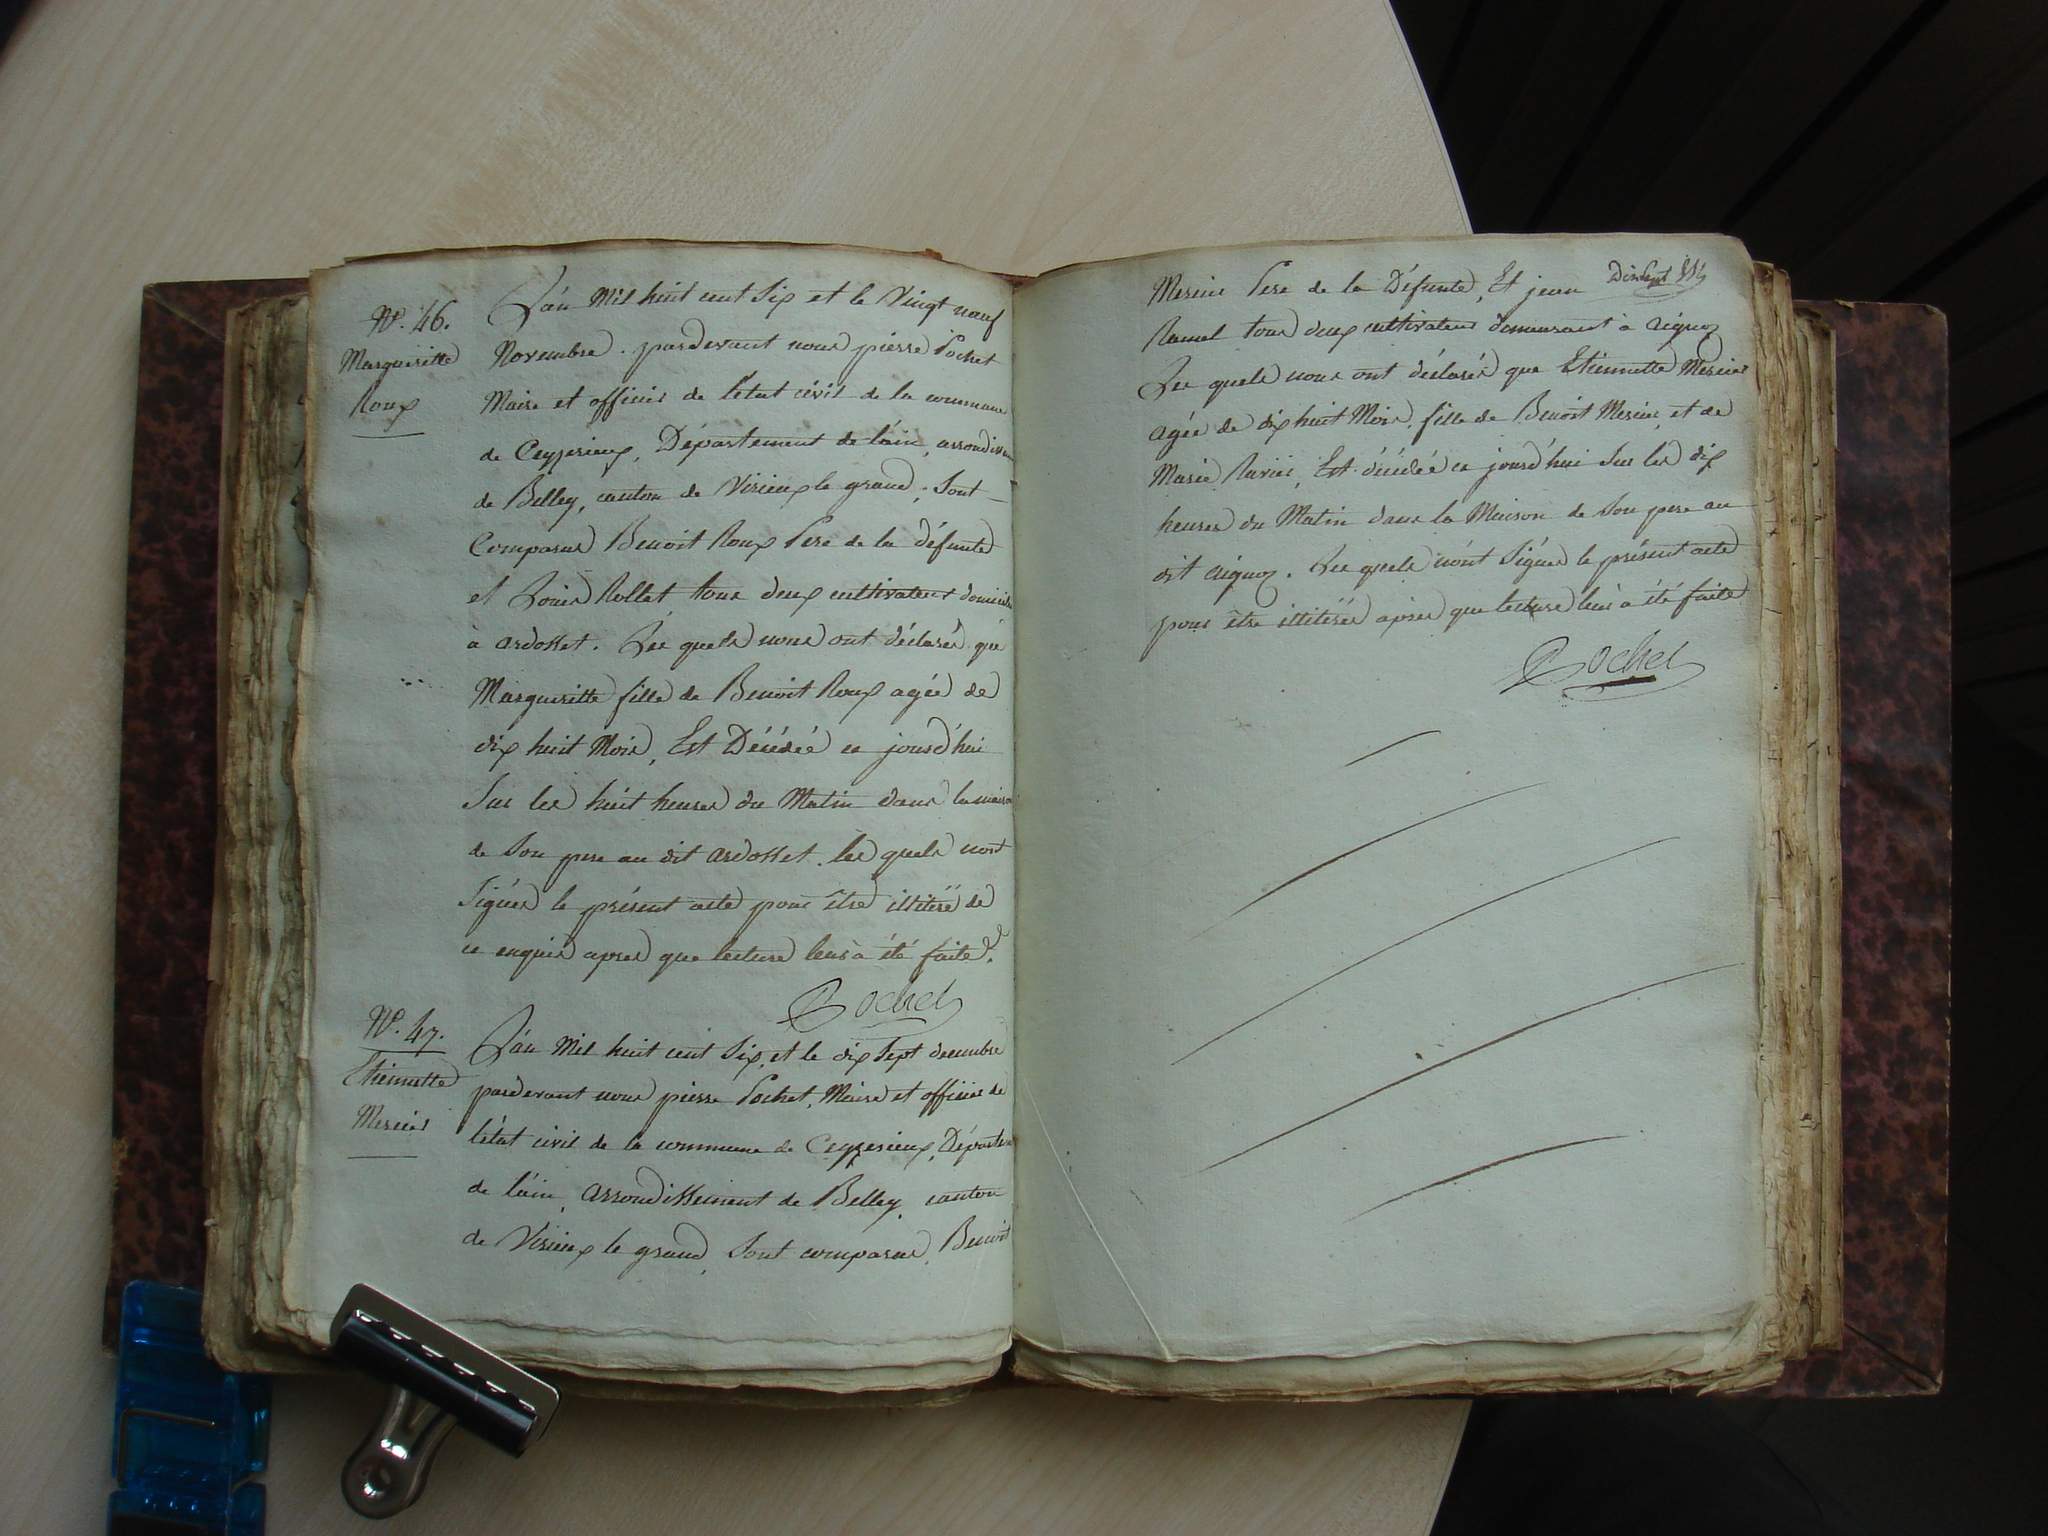 N°. 46.
Margueritte
Roux
L'an Mil huit cent Six et le Vingt neuf
Novembre. pardevant nous pierre Pochet
Maire et officier de l'état civil de la commune
de Ceyzerieux, Département de l'ain, arrondissem
de Belley, canton de Virieux le grand, Sont
Comparus Benoit Roux Pere de la défunte
et Louis Rollet, tous deux cultivateurs domiciliés
à ardosset. Les quels nous ont déclarés que
Margueritte fille de Benoit Roux agée de
dix huit Mois, Est Décédée ce jourd'hui
Sur les huit heures du Matin dans la maison
de Son pere au dit ardosset. les quels nont
Signés le présent acte pour être illiteré de
ce enquis apres que lecture leurs à été faite.
Pochet
N°. 47.
Etiennette
Mercier
L'an Mil huit cent Six, et le dix Sept decembre
pardevant nous pierre Pochet, Maire et officier de
l'état civil de la commune de Ceyzerieux, Départem
de l'ain, arrondissement de Belley, canton
de Virieux le grand, Sont comparus, Benoit
Mercier Pere de la Défunte, Et jean
Ramel tous deux cultivateurs demeurant à aignoz
Les quels nous ont déclarés que Etiennette Mercier
agée de dix huit Mois, fille de Benoit Mercier, et de
Marie Ravier, Est décédée ce jourd'hui Sur les dix
heures du Matin dans la Maison de Son pere au
dit aignoz. Les quels n'ont Signés le présent acte
pour être illiterés après que lecture leurs à été faite
Pochet